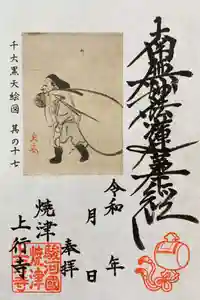 南無妙法蓮華経
令和 年
月 日
奉拝
焼津
上行寺
千六黒天絵図 其の十七
駿河國
焼津